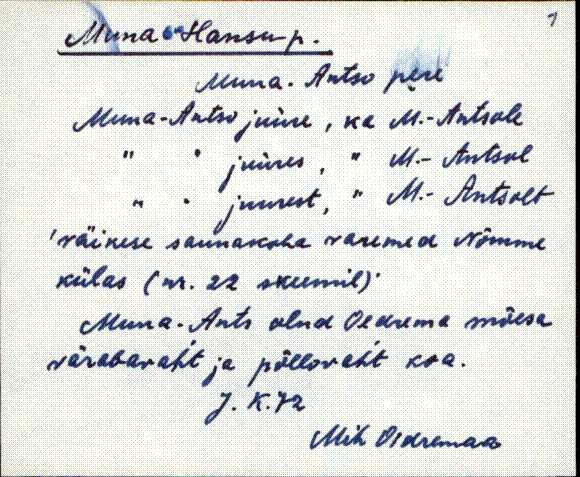 7
Muna Hansu p.
Muna-Antso pere
Muna-Antso juure, ka M.-Antsole
" " juures, " M.- Antsol
" " juurest, " M.- Antsolt
'väikese saunakoha varemed Nõmme
külas (nr. 22 skeemil)'
Muna-Ants olnd Oedrema mõesa
väravavaht ja põllovaht koa.
J. K. 72
Mih Oidremaa